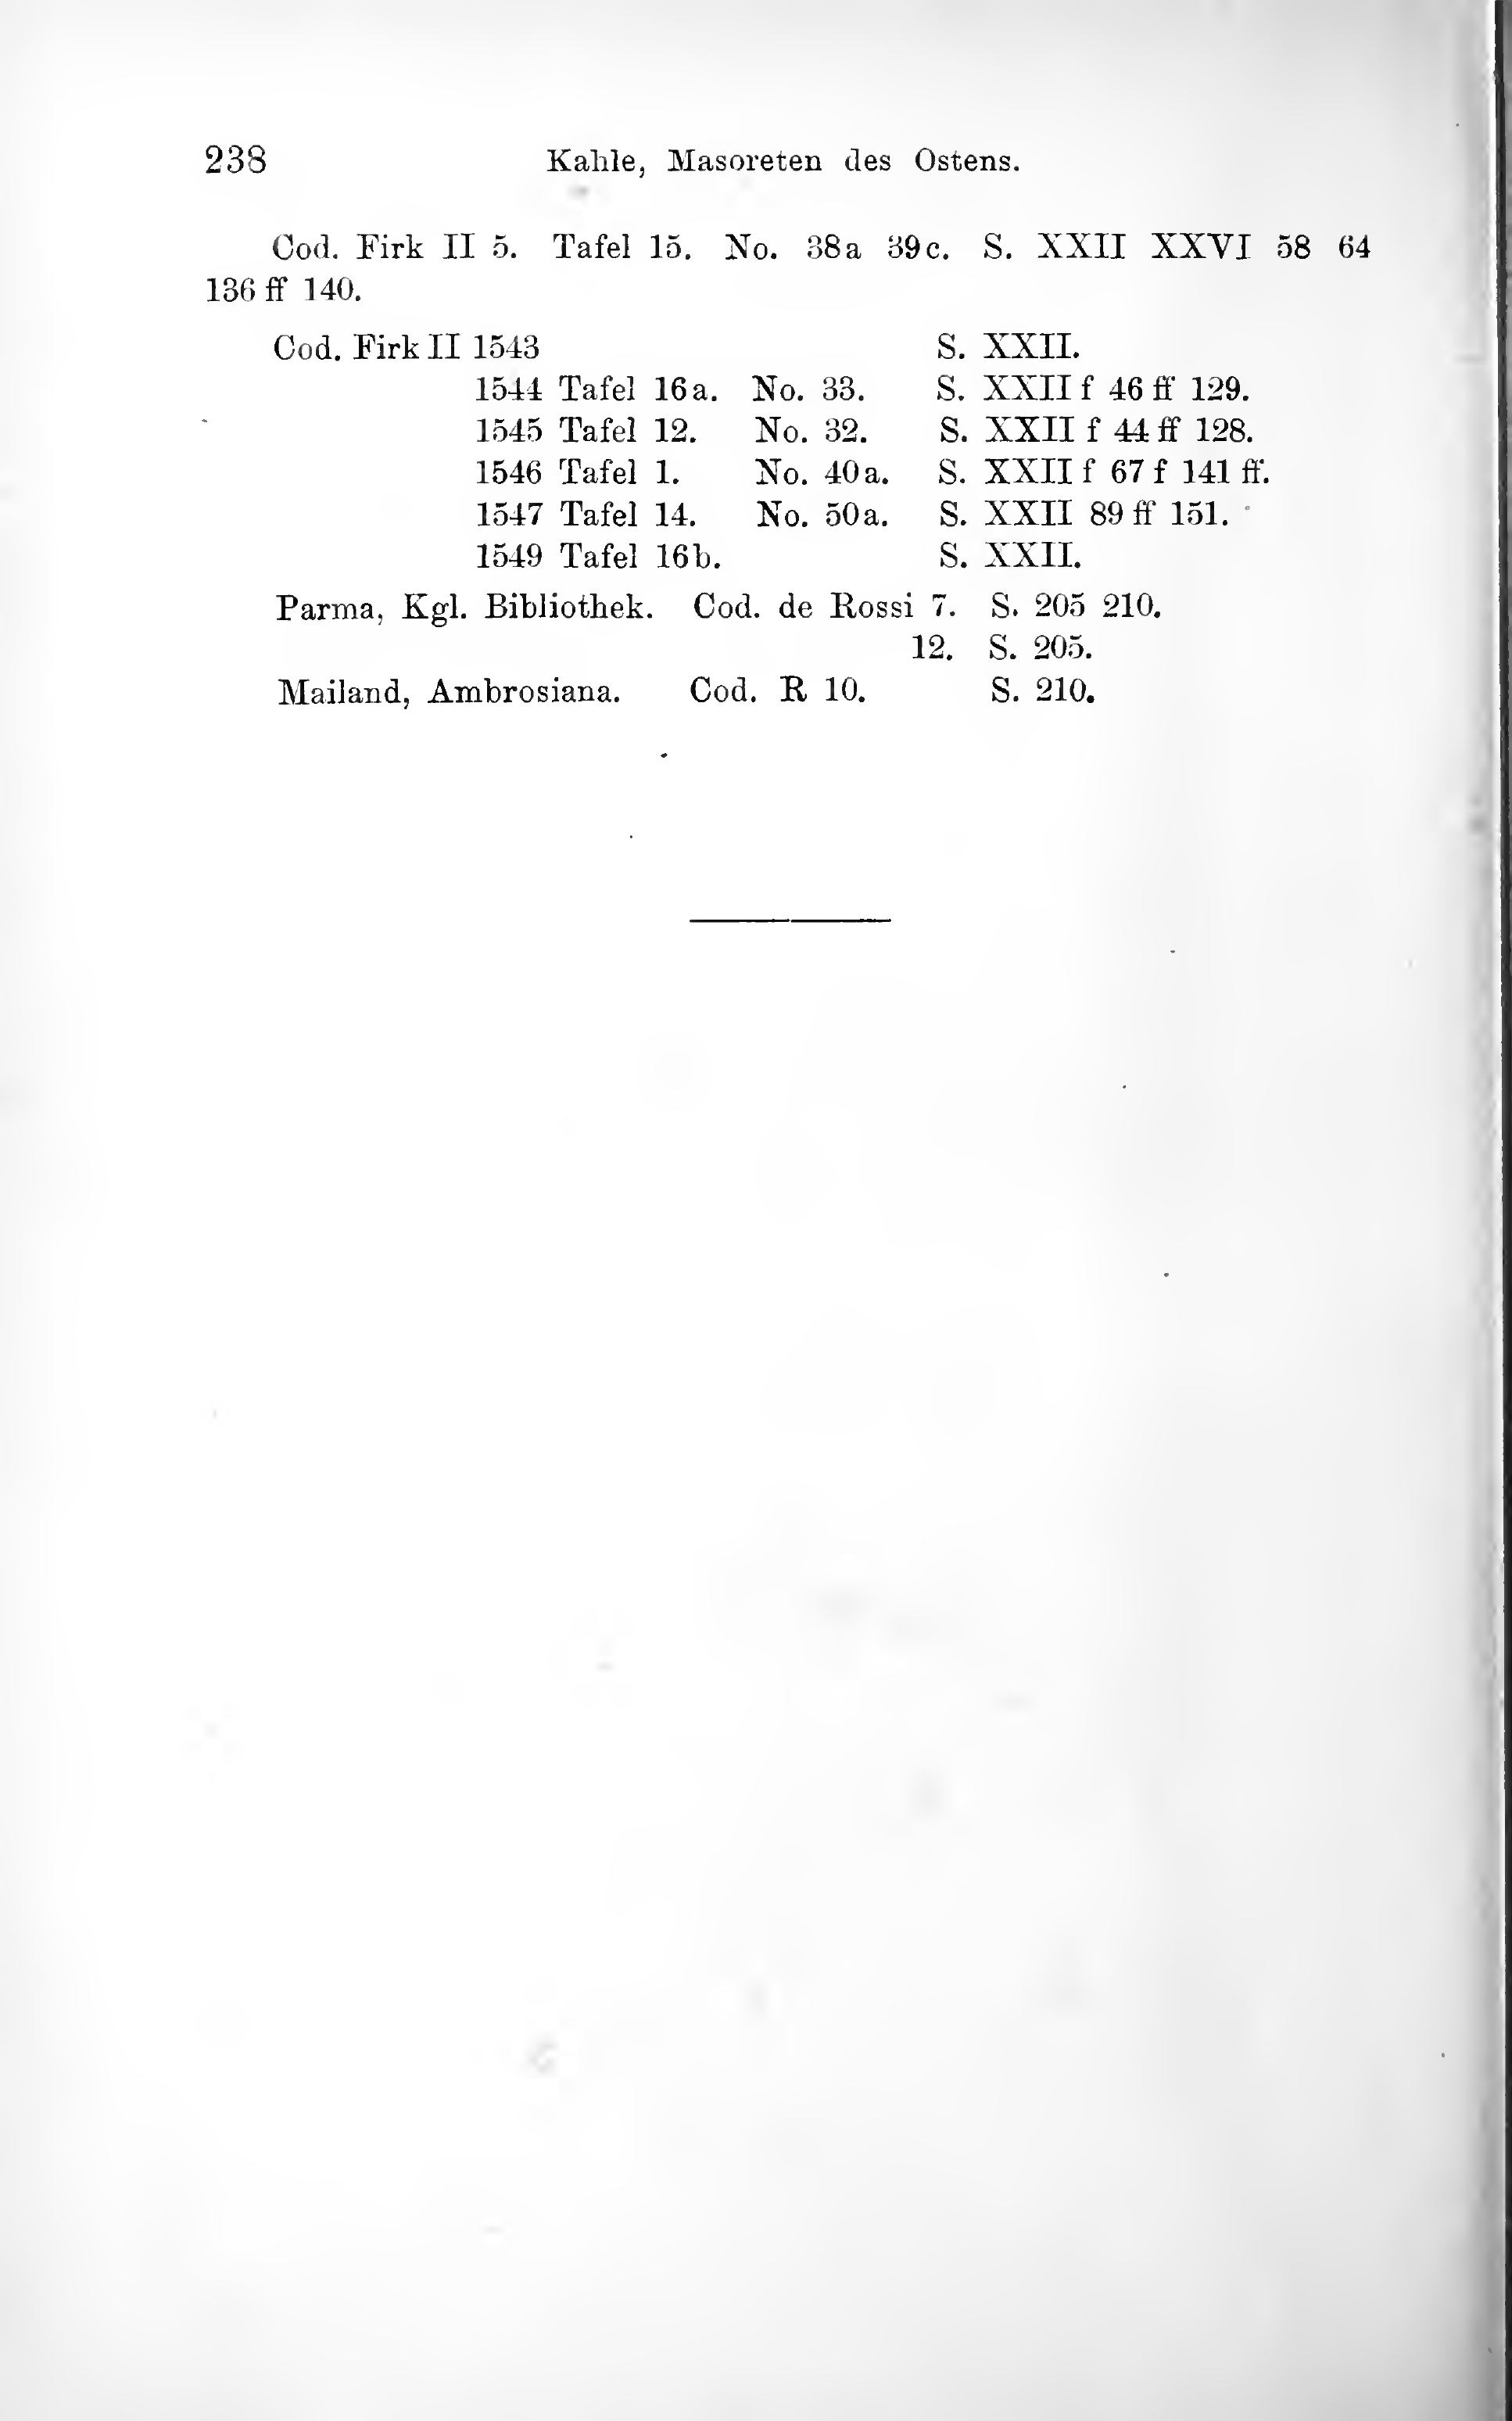 238 Kahle, Masoreten des Ostens.
Cod. Firk II 5. Tafel 15. No. 38a 39c. S. XXII XXVI 58 64
136 ff 140.
Cod. Firk II 1543 S. XXII.
1544 Tafel 16a. No. 33. S. XXII f 46 ff 129.
1545 Tafel 12. No. 32. S. XXII f 44 ff 128.
1546 Tafel 1. No. 40a. S. XXII f 67 f 141 ff.
1547 Tafel 14. No. 50a. S. XXII 89 ff 151.
1549 Tafel 16b. S. XXII.
Parma, Kgl. Bibliothek. Cod. de Rossi 7. S. 205 210.
12. S. 205.
Mailand, Ambrosiana. Cod. R 10. S. 210.